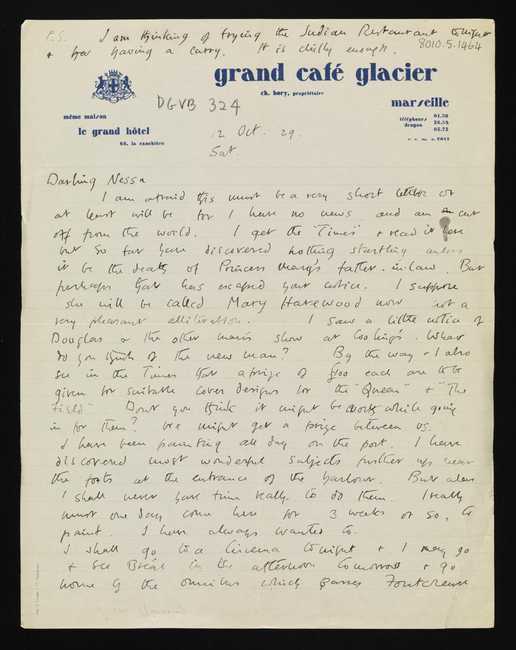 P.S. I am thinking of trying the Indian Restaurant tonight
& for having a curry. It is chilly enough.
8010.5.1464
grand café glacier
ch. bory, propriétaire
DGVB 324
marseille
même maison
le grand hôtel
66, la canebière
téléphones
dragon
12 Oct. 29.
Sat.
Darling Nessa
I am afraid this must be a very short letter or
at least will be for I have no news and am cut
off from the world. I get the Times & read it here
but so far have discovered nothing startling unless
it be the death of Princess Mary's father-in-law. But
perhaps that has escaped your notice. I suppose
she will be called Mary Harewood now not a
very pleasant alliteration. I saw a little notice of
Douglas & the other man's show at Cooling's. What
do you think of the new man? By the way I also
see in the Times that a prize of £100 each are to be
given for suitable cover designs for the "Queen" & "The
Field" Don't you think it might be worth while going
in for them? We might get a prize between us.
I have been painting all day on the port. I have
discovered most wonderful subjects further up near
the forts at the entrance of the harbour. But alas
I shall never have time really to do them. I really
must one day come here for 3 weeks or so, to
paint. I have always wanted to.
I shall go to a Cinema tonight & I may go
& see Bréal in the afternoon tomorrow & go
home by the omnibus which passes Fontcreuse